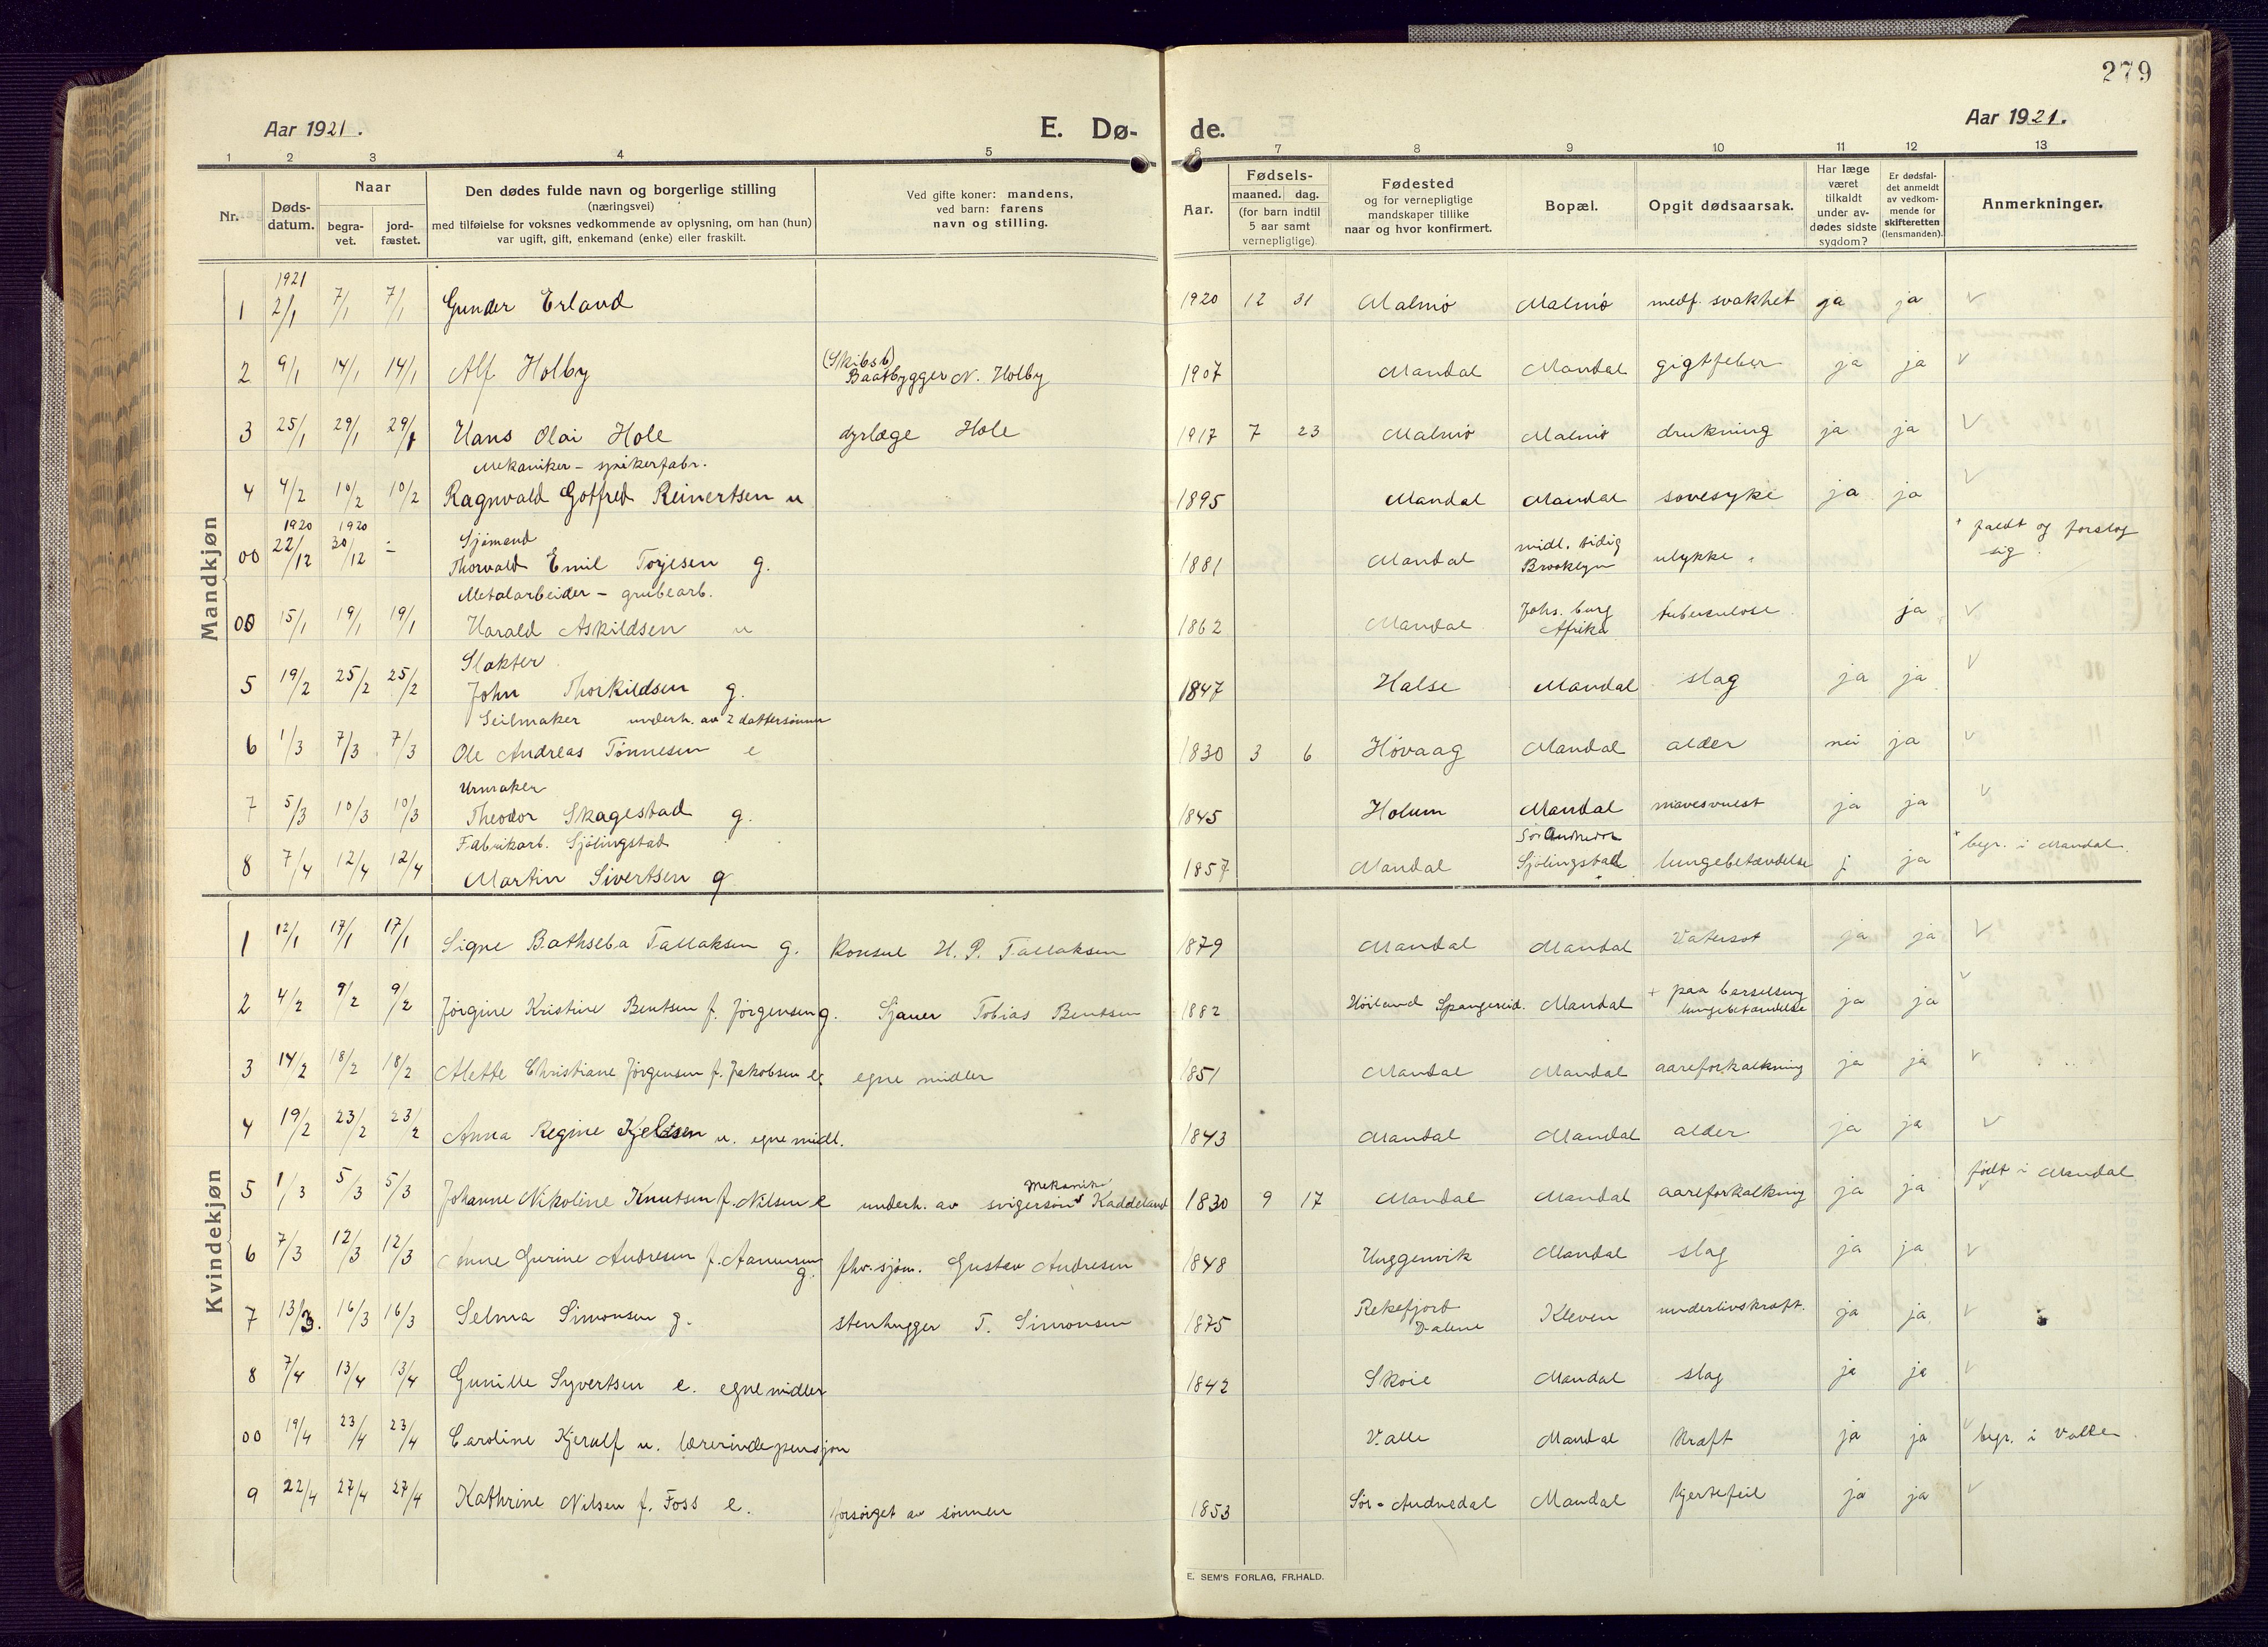 279
Aar 1921. E. Dø- de. Aar 1921.
1 2 3 4 5 6 7 8 9 10 11 12 13
Nr. Døds-datum. Naar begra-vet. jord-fæstet. Den dødes fulde navn og borgerlige stilling (næringsvei) med tilføielse for voksnes vedkommende av oplysning, om han (hun) var ugift, gift, enkemand (enke) eller fraskilt. Ved gifte koner: mandens, ved barn: farens navn og stilling. Aar. Fødsels- maaned. dag. (for barn indtil 5 aar samt vernepligtige) Fødested og for vernepligtige mandskaper tillike naar og hvor konfirmert. Bopæl. Opgit dødsaarsak. Har læge været tilkaldt under av-dødes sidste sygdom? Er dødsfal-det anmeldt av vedkom-mende for skifteretten (lensmanden). Anmerkninger.
Mandkjøn
1921
1 2/1 7/1 7/1 Gunder Erland 1920 12 31 Malmø Malmø medf. svakhet ja ja v
2 9/1 14/1 14/1 Alf Holby (Skibsb) Baatbygger N. Holby 1907 Mandal Mandal gigtfeber ja ja v
3 25/1 29/1 29/1 Hans Olai Hole dyrlæge Hole 1917 7 23 Malmø Malmø drukning ja ja v
Mekaniker - spikerfabr.
4 4/2 10/2 10/2 Ragnvald Gotfred Reinertsen u 1895 Mandal Mandal sovesyke ja ja v
1920 1920 Sjømand
00 22/12 30/12 - Thorvald Emil Torjesen g. 1881 Mandal midl. tidig Brooklyn ulykke + faldt og forslog sig
Metalarbeider - grubearb.
00 15/1 19/1 19/1 Harald Askildsen u 1862 Mandal Johs. burg Afrika tuberculose ja v
Slakter
5 19/2 25/2 25/2 John Thorkildsen g. 1847 Halse Mandal slag ja ja v
Seilmaker underh. av 2 dattersønner
6 1/3 7/3 7/3 Ole Andreas Tønnesen e 1830 3 6 Høvaag Mandal alder nei ja v
Urmaker
7 5/3 10/3 10/3 Theodor Skagestad g. 1845 Holum Mandal mavesvulst ja ja v
Fabrikarb. Sjølingstad
8 7/4 12/4 12/4 Martin Sivertsen g 1857 Mandal Sjølingstad lungebetændelse j ja begr. i Mandal.
Kvindekjøn
1 12/1 17/1 17/1 Signe Bathseba Tallaksen g. Konsul H. P. Tallaksen 1879 Mandal Mandal Vatersot ja ja v
2 4/2 9/2 9/2 Jørgine Kristine Bentsen f. Jørgensen g. Sjauer Tobias Bentsen 1882 Høiland Spangereid. Mandal + paa barselseng lungebetændelse ja ja v
3 14/2 18/2 18/2 Alette Christiane Jørgensen f. Jakobsen e. egne midler 1851 Mandal Mandal aareforkalkning ja ja v
4 19/2 23/2 23/2 Anna Regine Kjeldsen u. egne midl. 1843 Mandal Mandal alder ja ja v
5 1/3 5/3 5/3 Johanne Nikoline Knutsen f. Nilsen e underh. av svigersøn Mekanik Kaddeland 1830 9 17 Mandal Mandal aareforkalkning ja ja født i Mandal v
6 7/3 12/3 12/3 Anne Gurine Andresen f. Aanensen g. fhv. sjøm. Gustav Andresen 1848 Unggenvik Mandal slag ja ja v
7 13/3. 16/3 16/3 Selma Simonsen g. stenhugger T. Simonsen 1875 Rekefjord Dalene Kleven underlivskræft. ja ja v
8 7/4 13/4 13/4 Gunille Syvertsen e. egne midler 1842 Skoie Mandal slag ja ja v
00 19/4 23/4 23/4 Caroline Kjerulf u. lærerindepensjon Valle Mandal Kræft ja ja v begr. i Valle
9 22/4 27/4 27/4 Kathrine Nilsen f. Foss e. forsørget av sønnen 1853 Sør-Audnedal Mandal hjertefeil ja ja v
E. SEM'S FORLAG, FR.HALD.